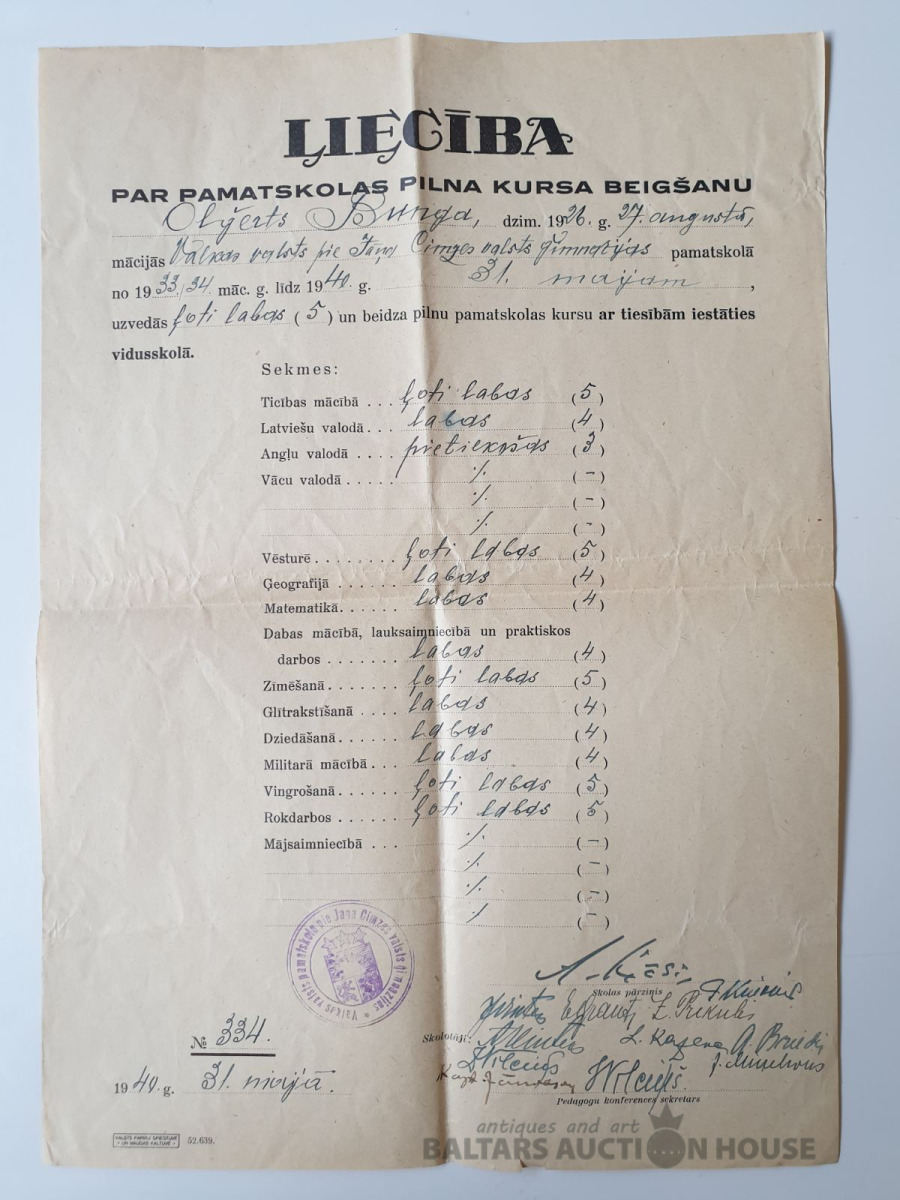 LIECĪBA
PAR PAMATSKOLAS PILNA KURSA BEIGŠANU
Oļģerts Bunga, dzim. 1926. g. 27. augustā,
mācijās Valkas valsts pie Jāņa Cimzes valsts ģimnazijas pamatskolā
no 1933./34. māc. g. līdz 1940. g. 31. maijam,
uzvedās ļoti labas (5) un beidza pilnu pamatskolas kursu ar tiesībām iestāties
vidusskolā.
Sekmes:
Ticības mācībā . . . ļoti labas (5)
Latviešu valodā . . . labas (4)
Angļu valodā . . . . pietiekošas (3)
Vācu valodā . . . . . ٪ (–)
٪ (–)
٪ (–)
Vēsturē . . . . . . . . ļoti labas (5)
Ģeografijā . . . . . . labas (4)
Matematikā. . . . . . labas (4)
Dabas mācībā, lauksaimniecībā un praktiskos
darbos . . . . . . . labas (4)
Zīmēšanā . . . . . . . ļoti labas (5)
Glītrakstīšanā . . . . labas (4)
Dziedāšanā . . . . . . labas (4)
Militarā mācībā . . . labas (4)
Vingrošanā . . . . . . ļoti labas (5)
Rokdarbos . . . . . . ļoti labas (5)
Mājsaimniecībā . . . ٪ (–)
٪ (–)
٪ (–)
٪ (–)
Valkas valsts pamatskola pie Jāņa Cimzes valsts ģimnazijas
Skolas pārzinis
Skolotāji:
№ 334.
1940. g. 31. maijā.
Pedagogu konferences sekretars
VALSTS PAPIRU SPIESTUVE
UN NAUDAS KALTUVE
52.639.
antiques and art
BALTARS AUCTION HOUSE